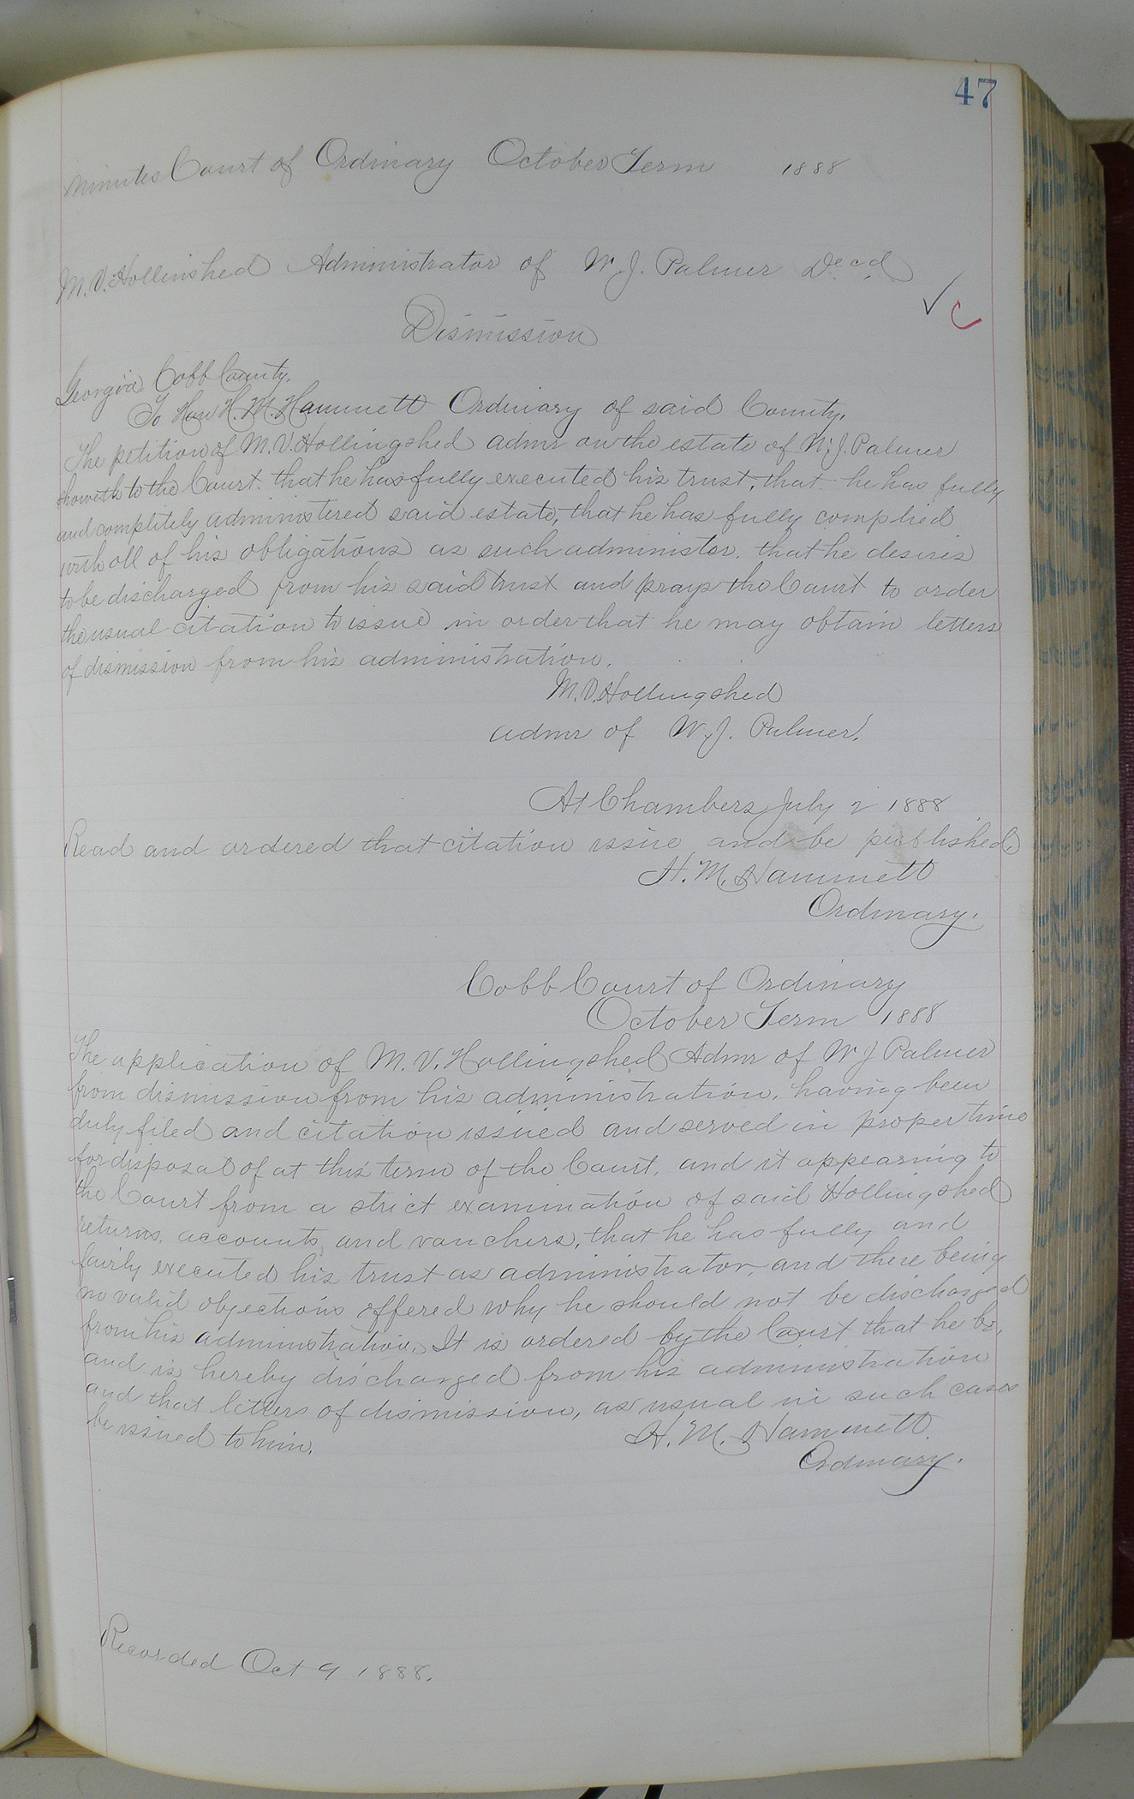 47
Minutes Court of Ordinary October Term 1888
M. V. Hollinshed Administrator of W. J. Palmer Decd
Dismission
Georgia Cobb County.
To Hon H. M. Hammett Ordinary of said County.
The petition of M. V. Hollingshed admr on the estate of W. J. Palmer
showeth to the Court. that he has fully executed his trust, that he has fully
and completely administered said estate, that he has fully complied
with all of his obligations as such administor. that he desires
to be discharged from his said trust and prays the Court to order
the usual citation to issue in order that he may obtain letters
of dismission from his administration.
M. V. Hollingshed
admr of W. J. Palmer.
At Chambers July 2 1888
Read and ordered that citation issue and be published.
H. M. Hammett
Ordinary.
Cobb Court of Ordinary
October Term 1888
The application of M. V. Hollingshed Admr of W J Palmer
from dismission from his administration, having been
duly filed and citation issued and served in proper time
for disposal of at this term of the Court, and it appearing to
the Court from a strict examination of said Hollingshed
returns, accounts, and vouchers, that he has fully and
fairly executed his trust as administrator, and there being
no valid objections offered why he should not be discharged
from his administration. It is ordered by the Court that he be,
and is hereby discharged from his administration
and that letters of dismission, as usual in such cases
be issued to him.
H. M. Hammett.
Ordinary.
Recorded Oct 9 1888.